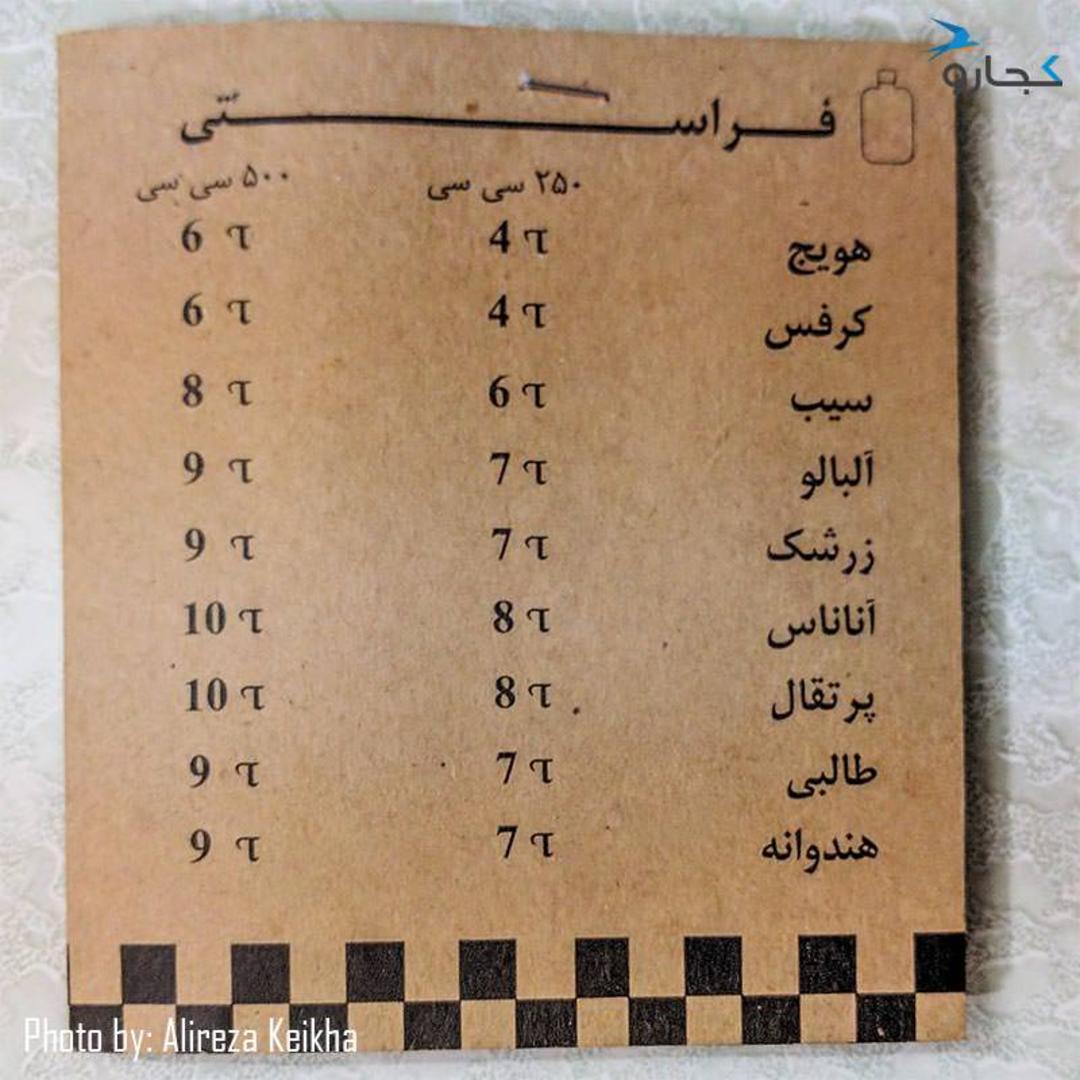 کجارو
فراستی
۲۵۰ سی سی ۵۰۰ سی سی
هویج 4 T 6 T
کرفس 4 T 6 T
سیب 6 T 8 T
آلبالو 7 T 9 T
زرشک 7 T 9 T
آناناس 8 T 10 T
پرتقال 8 T 10 T
طالبی 7 T 9 T
هندوانه 7 T 9 T
Photo by: Alireza Keikha